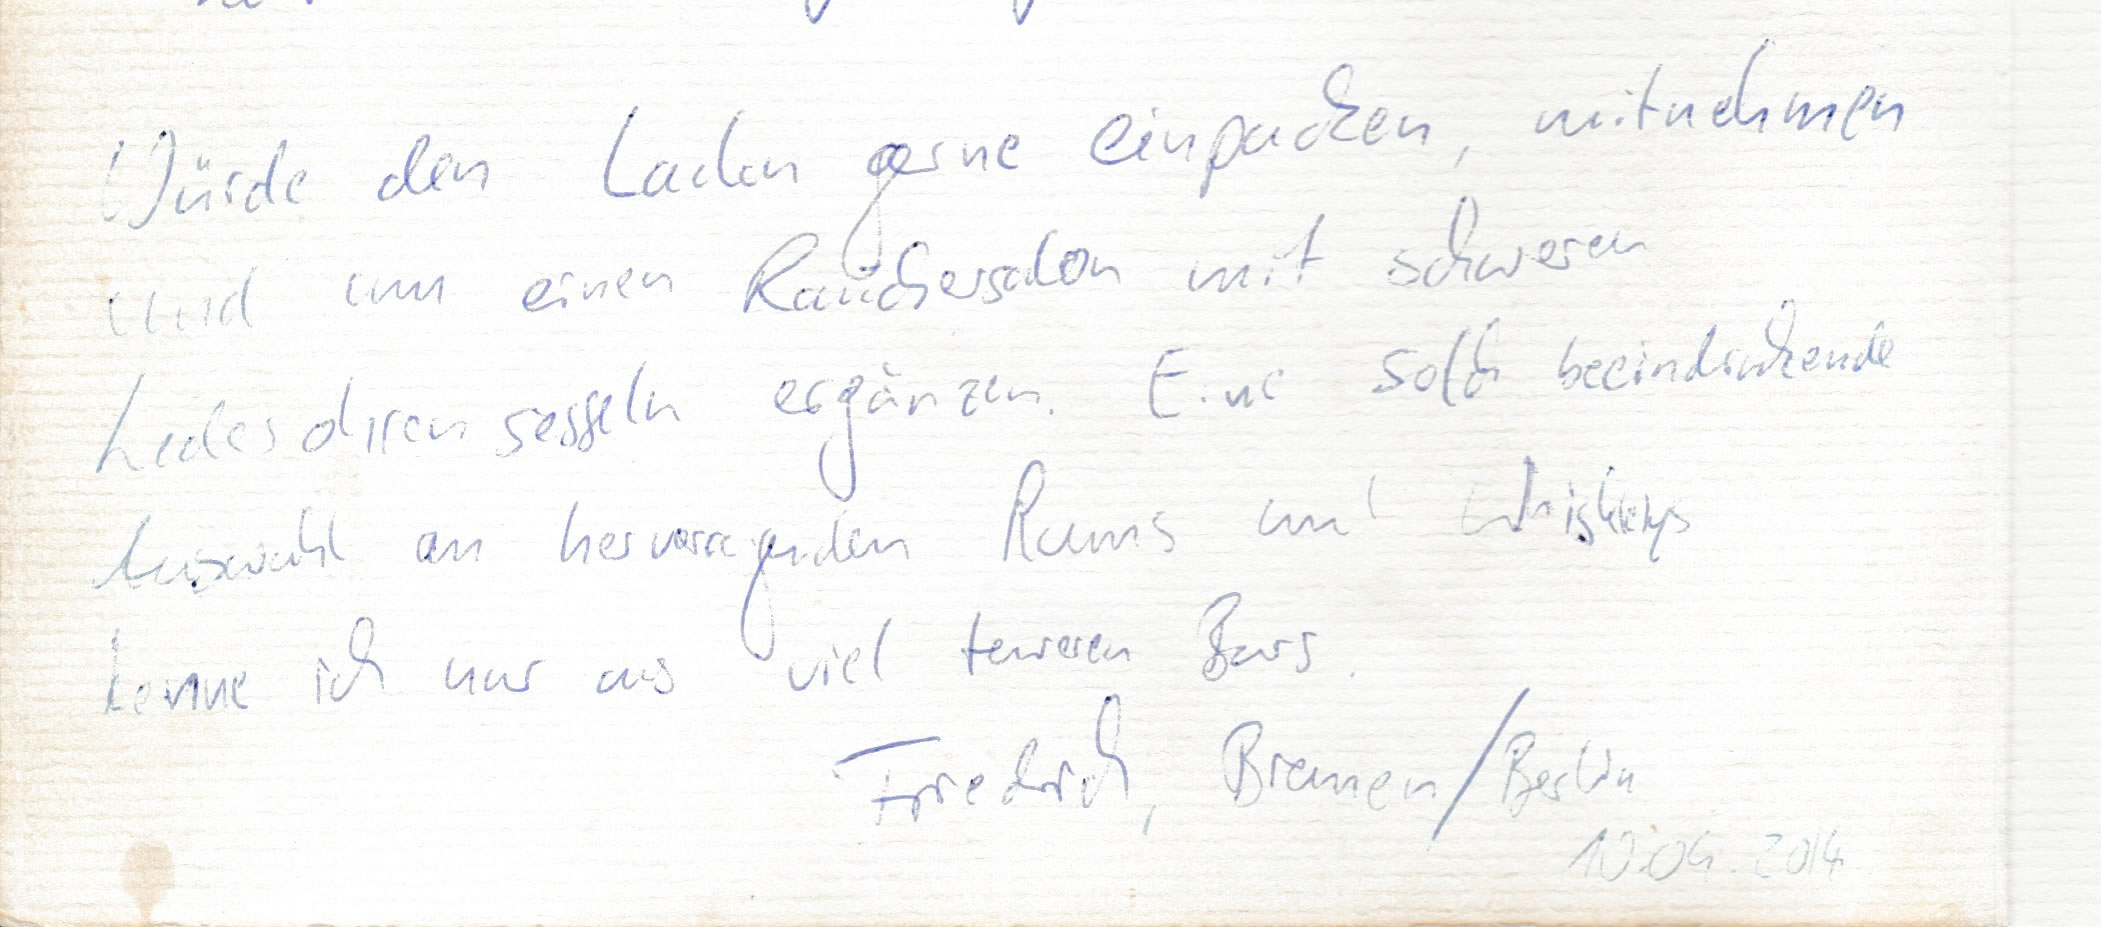 Würde den Laden gerne einpacken, mitnehmen
und um einen Rauchersalon mit schweren
Lederohrensesseln ergänzen. Eine solch beeindruckende
Auswahl an hervorragenden Rums und Whiskeys
kenne ich nur aus viel teureren Bars.
Friedrich, Bremen/Berlin
10.04.2014